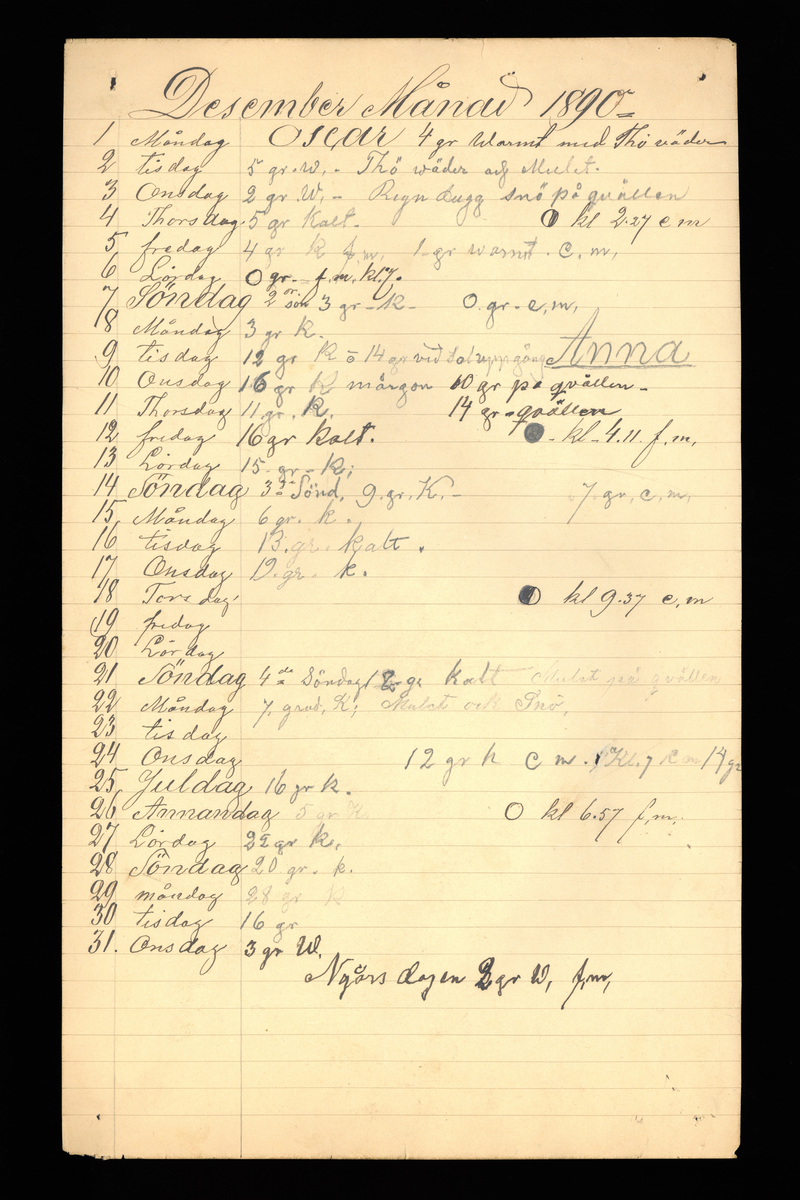 Desember Månad 1890
1 Måndag Oscar 4 gr Warmt med Thö väder
2 tisdag 5 gr. W, - Thö wäder och Mulet.
3 Onsdag 2 gr. W, - Regn Dugg snö på qvällen
4 Thorsdag. 5 gr Kalt. kl 2.27 e m
5 fredag 4 gr K f,m, 1 gr warmt. e, m,
6 Lördag 0 gr - f, m, kl 7.
7 Söndag 2 sön 3 gr - K - 0. gr - e, m,
8 Måndag 3 gr K.
9 tisdag 12 gr K o 14 gr vid Soluppgång Anna
10 Onsdag 16 gr K mårgon 10 gr på qvällen -
11 Thorsdag 11 gr. K. 14 gr - qvällen
12 fredag 16 gr kalt. - kl - 4.11. f. m,
13 Lördag 15 - gr - K;
14 Söndag 3dje Sönd, 9. gr, K, - 7. gr, e, m,
15, Måndag 6 gr. k.
16 tisdag 13. gr. kalt.
17 Onsdag 19. gr. k.
18 Torsdag kl 9.37 e, m
19 fredag
20 Lördag
21 Söndag 4de Söndag gr kalt Mulet på qvällen
22 Måndag 7, grad, K; Mulet ock Snö,
23 tisdag
24 Onsdag 12 gr k e m. Kl. 7 e m 14 gr
25, Juldag 16 gr k.
26 Annandag 5 gr K. kl 6.57 f, m,
27 Lördag 22 gr k,
28 Söndag 20 gr. k.
29 måndag 28 gr K
30 tisdag 16 gr
31. Onsdag 3 gr W,
Nyårsdagen 2 gr W, f,m,